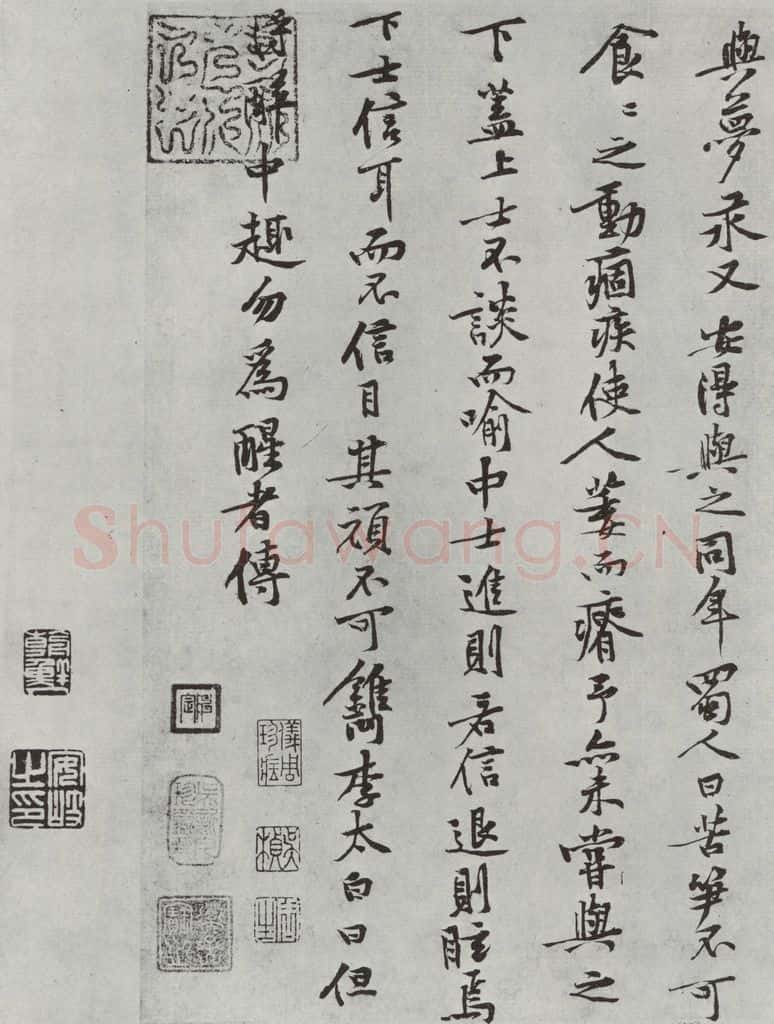 與夢永又安得與之同年蜀人曰苦笋不可
食〻之動痼疾使人萎而瘠予亦未嘗與之
下蓋上士不談而喻中士進則若信退則眩焉
下士信耳而不信目其頑不可鐫李太白曰但
得醉中趣勿爲醒者傳
儀周珍藏
安岐之印
Shufawang.CN